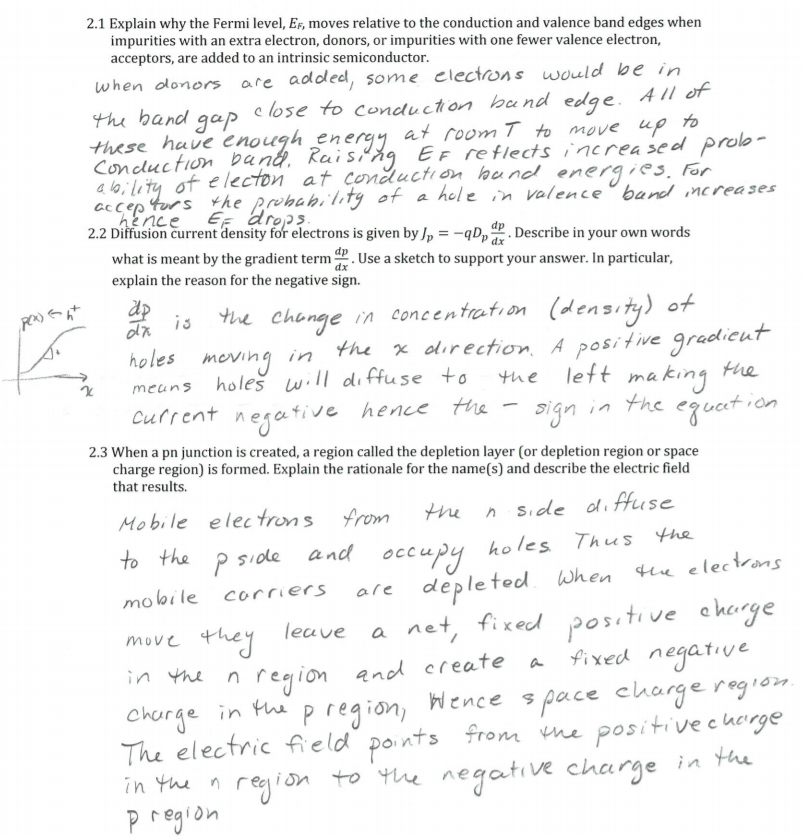 2.1 Explain why the Fermi level, E_F, moves relative to the conduction and valence band edges when
impurities with an extra electron, donors, or impurities with one fewer valence electron,
acceptors, are added to an intrinsic semiconductor.
When donors are added, some electrons would be in
the band gap close to conduction band edge. All of
these have enough energy at room T to move up to
Conduction band. Raising E_F reflects increased prob-
ability of electon at conduction band energies. For
acceptors the probability of a hole in valence band increases
hence E_F drops.
2.2 Diffusion current density for electrons is given by J_p = −qD_p dp/dx. Describe in your own words
what is meant by the gradient term dp/dx. Use a sketch to support your answer. In particular,
explain the reason for the negative sign.
p(x) ← h⁺
x
dp/dx is the change in concentration (density) of
holes moving in the x direction. A positive gradient
means holes will diffuse to the left making the
current negative hence the − sign in the equation
2.3 When a pn junction is created, a region called the depletion layer (or depletion region or space
charge region) is formed. Explain the rationale for the name(s) and describe the electric field
that results.
Mobile electrons from the n side diffuse
to the p side and occupy holes. Thus the
mobile carriers are depleted. When the electrons
move they leave a net, fixed positive charge
in the n region and create a fixed negative
charge in the p region, Hence space charge region.
The electric field points from the positive charge
in the n region to the negative charge in the
p region